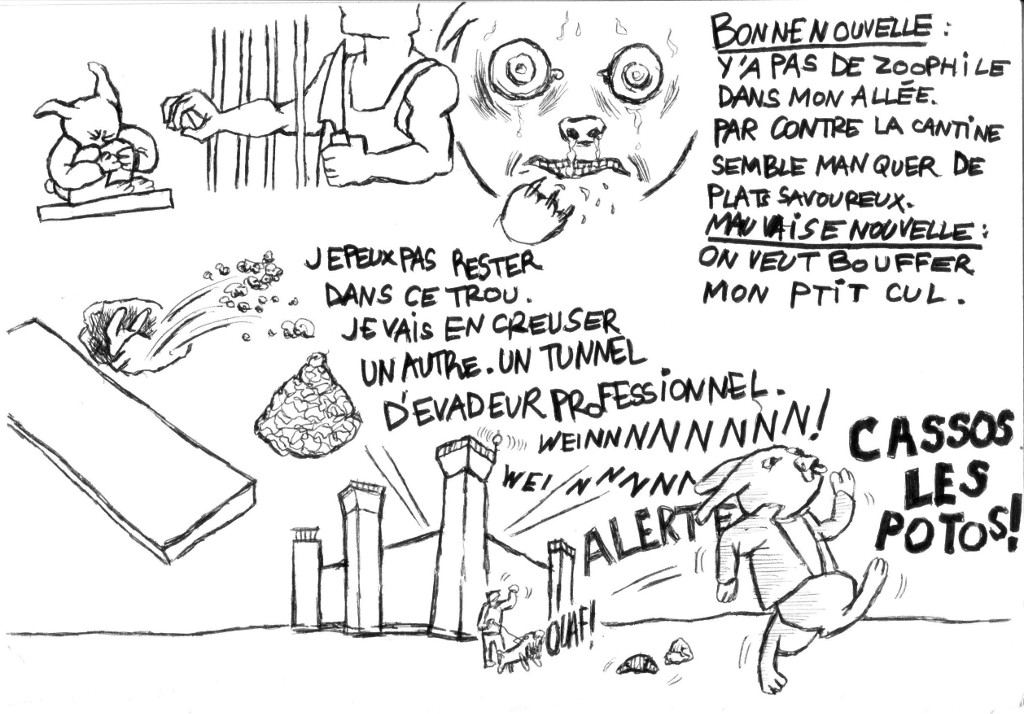 BONNE NOUVELLE :
Y'A PAS DE ZOOPHILE
DANS MON ALLÉE.
PAR CONTRE LA CANTINE
SEMBLE MANQUER DE
PLATS SAVOUREUX.
MAUVAISE NOUVELLE :
ON VEUT BOUFFER
MON PTIT CUL.
JE PEUX PAS RESTER
DANS CE TROU.
JE VAIS EN CREUSER
UN AUTRE. UN TUNNEL
D'EVADEUR PROFESSIONNEL.
WEINNNNNNNNN!
WEINNNNNN
ALERTE
OUAF!
CASSOS
LES
POTOS!